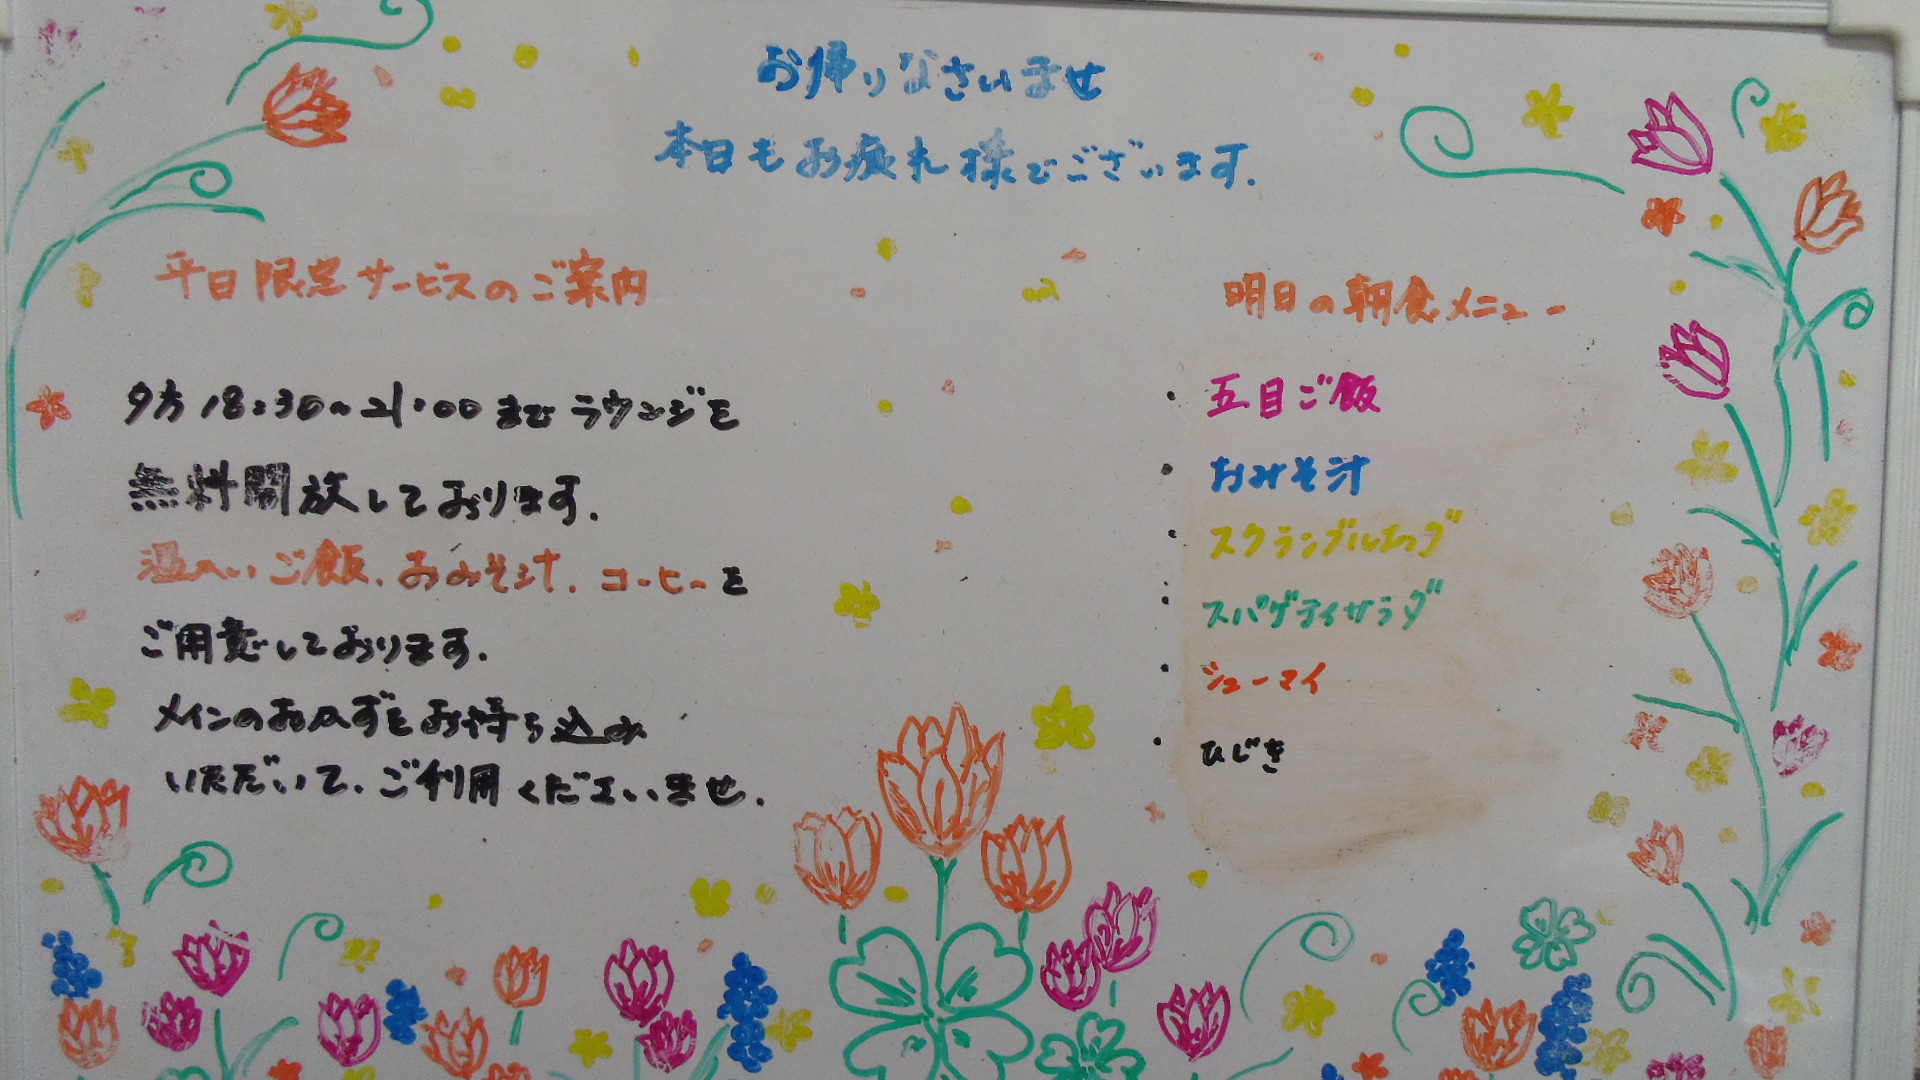 お帰りなさいませ
本日もお疲れ様でございます.
平日限定サービスのご案内
夕方18:30~21:00までラウンジを
無料開放しております.
温かいご飯、おみそ汁、コーヒーを
ご用意しております.
メインのおかずをお持ち込み
いただいて、ご利用くださいませ.
明日の朝食メニュー
・五目ご飯
・おみそ汁
・スクランブルエッグ
・スパゲティサラダ
・シューマイ
・ひじき